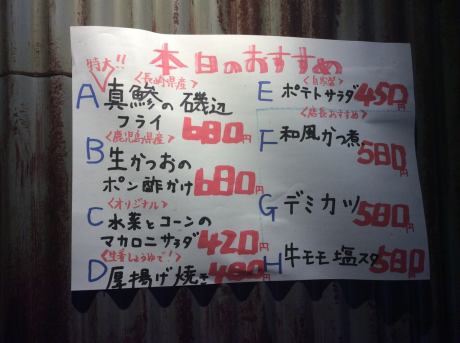 本日のおすすめ
特大!!
<長崎県産>
A 真鯵の磯辺
フライ 680円
<鹿児島県産>
B 生かつおの
ポン酢かけ 680円
<オリジナル>
C 水菜とコーンの
マカロニサラダ 420円
<生姜しょうゆで!>
D 厚揚げ焼き 480円
<自家製>
E ポテトサラダ 450円
<店長おすすめ>
F 和風かつ煮
580円
G デミカツ 580円
H 牛モモ塩スタ 580円